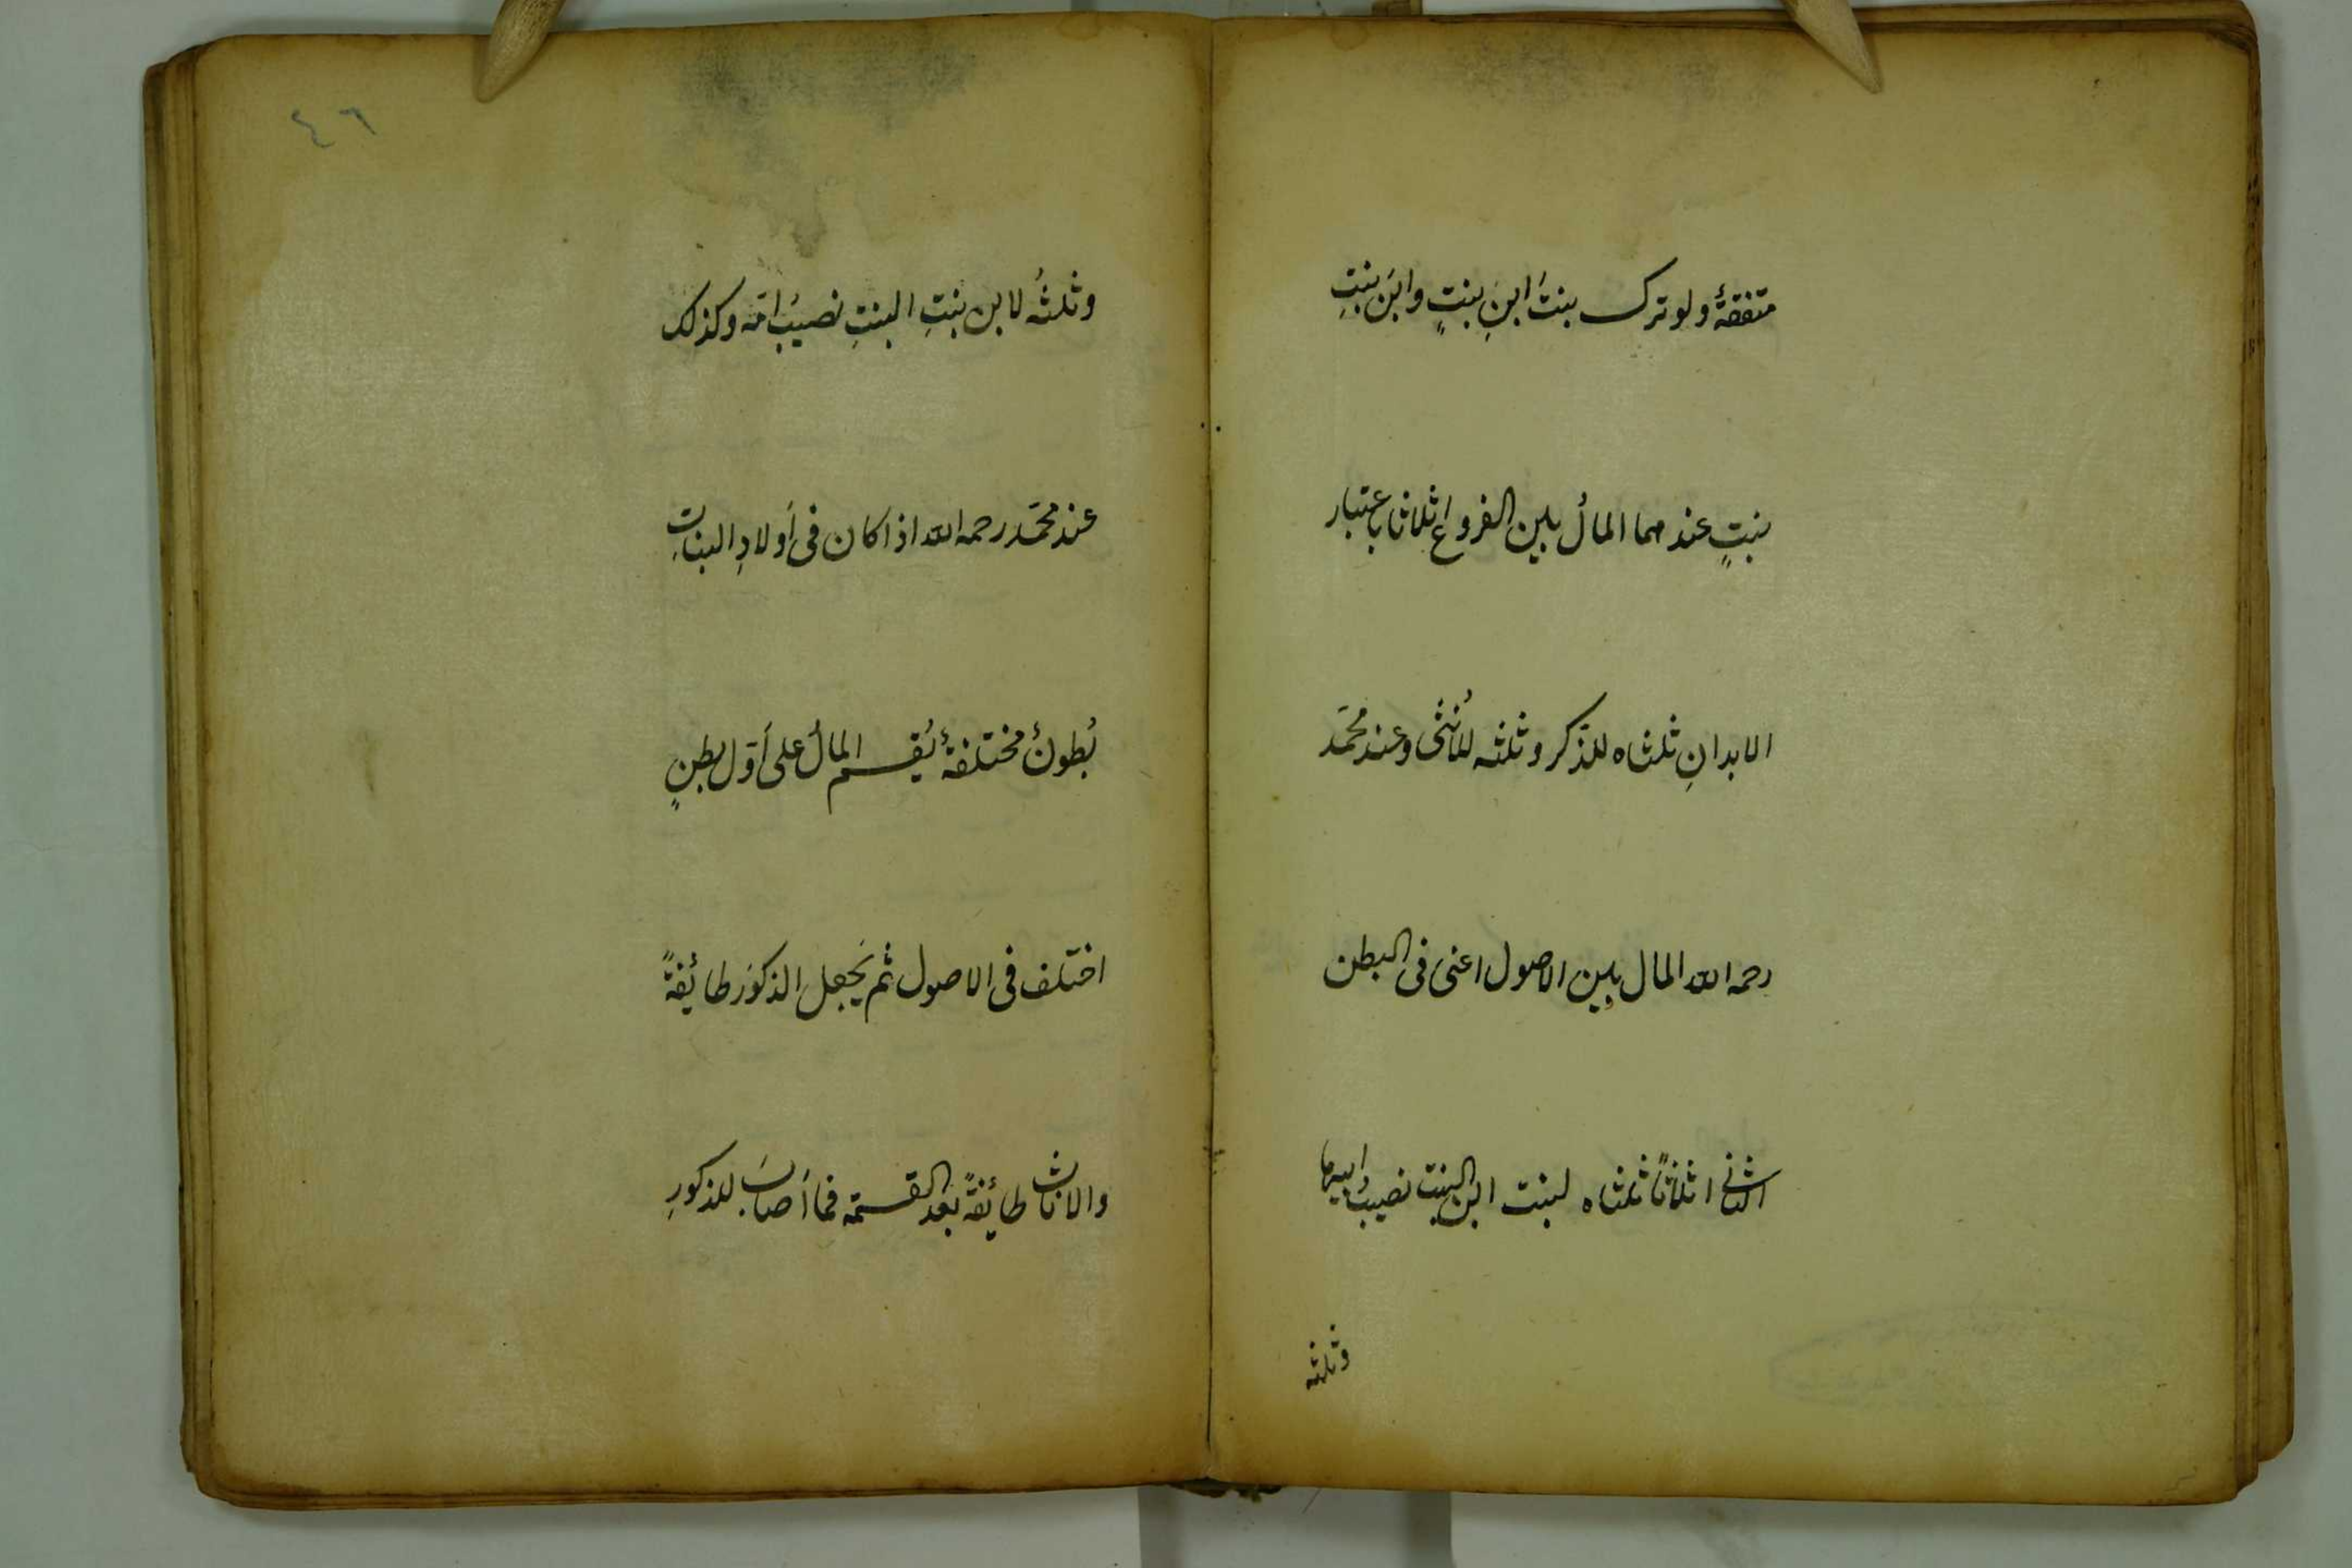 متفقةٌ ولو ترك بنتَ ابنِ بنتٍ وابنَ بنتِ
بنتٍ عندهما المالُ بين الفروع اثلاثا باعتبار
الابدانِ ثلثاه للذّكر وثلثه للأُنثى وعند محمّد
رحمه الله المال بين الاصول اعنى فى البطن
الثانى اثلاثاً ثلثاه لبنت ابن البنت نصيبُ ابيها
وثلثه
٤٦
وثلثُه لابن بنتِ البنتِ نصيبُ امّه وكذلك
عند محمّد رحمه الله اذا كان فى أولادِ البناتِ
بُطونٌ مختلفةٌ يُقسم المالُ على أوّل بطنٍ
اختلف فى الاصول ثم يَجعل الذكورَ طائفةً
والاناث طائفةً بعد القسمة فما أصابَ للذكورِ